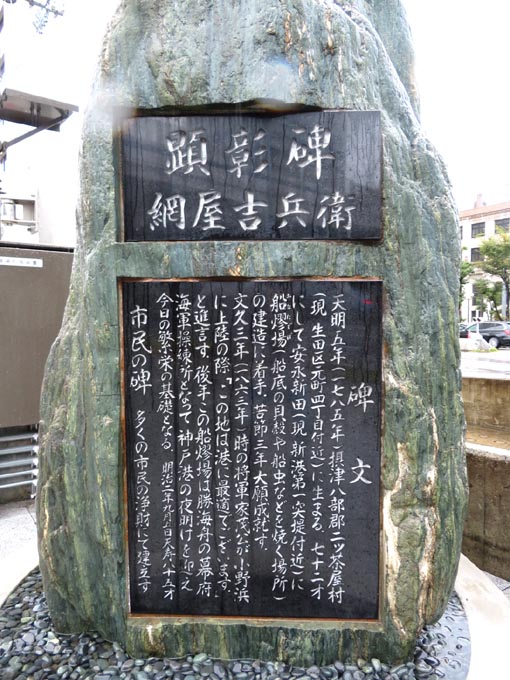 顕彰碑
網屋吉兵衛
碑文
天明五年(一七八五年)摂津八部郡二ッ茶屋村
(現 生田区元町四丁目付近)に生まる 七十二才
にして安永新田(現 新港第一突堤付近)に
船熮場(船底の貝殻や船虫などを焼く場所)
の建造に着手、苦節三年大願成就す。
文久三年(一八六三年)時の将軍家茂公が小野浜
に上陸の際、「この地は港に最適でございます。」
と進言す、後年この船熮場は勝海舟の幕府
海軍操練所となって神戸港の夜明けを迎え
今日の繁栄の基礎となる 明治二年九月 日天寿八十五才
市民の碑 多くの市民の浄財にて建立す